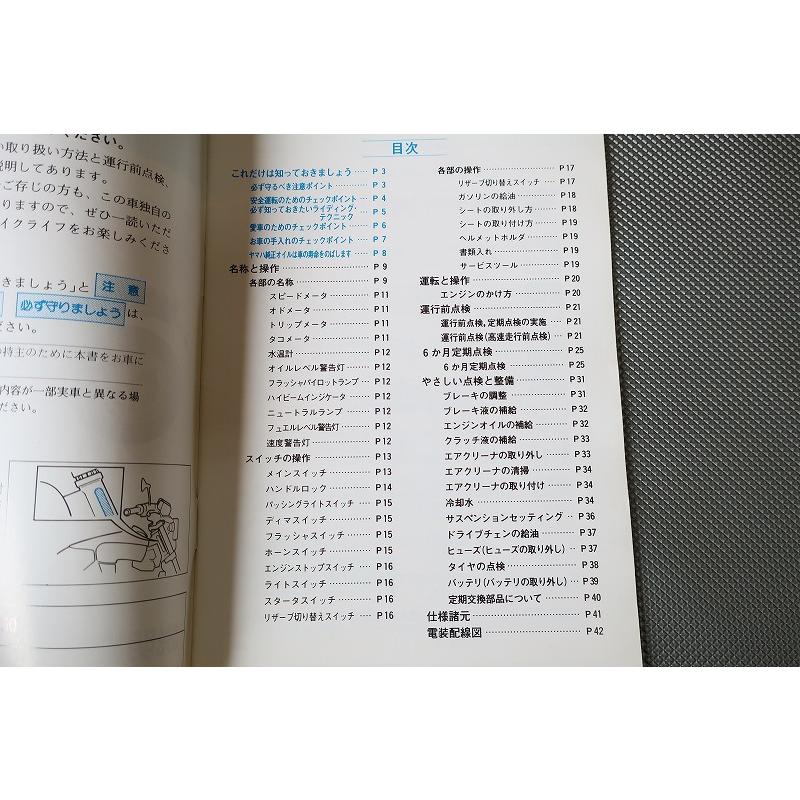 ください。
い取り扱い方法と運行前点検、
説明してあります。
ご存じの方も、この車独自の
りますので、ぜひ一読いただ
イクライフをお楽しみくださ
きましょう」と 注意
必ず守りましょう は、
ださい。
の持主のために本書をお車に
内容が一部実車と異なる場
ださい。
目次
これだけは知っておきましょう …… P 3
必ず守るべき注意ポイント ………… P 3
安全運転のためのチェックポイント …… P 4
必ず知っておきたいライディング・
テクニック …… P 5
愛車のためのチェックポイント …… P 6
お車の手入れのチェックポイント …… P 7
ヤマハ純正オイルは車の寿命をのばします …… P 8
名称と操作 ………… P 9
各部の名称 ………… P 9
スピードメータ ………… P11
オドメータ ………… P11
トリップメータ ………… P11
タコメータ ………… P11
水温計 ………… P12
オイルレベル警告灯 ………… P12
フラッシャパイロットランプ …… P12
ハイビームインジケータ …… P12
ニュートラルランプ ………… P12
フュエルレベル警告灯 ………… P12
速度警告灯 ………… P12
スイッチの操作 ………… P13
メインスイッチ ………… P13
ハンドルロック ………… P14
パッシングライトスイッチ …… P15
ディマスイッチ ………… P15
フラッシャスイッチ ………… P15
ホーンスイッチ ………… P15
エンジンストップスイッチ …… P16
ライトスイッチ ………… P16
スタータスイッチ ………… P16
リザーブ切り替えスイッチ …… P16
各部の操作 ………… P17
リザーブ切り替えスイッチ …… P17
ガソリンの給油 ………… P18
シートの取り外し方 ………… P18
シートの取り付け方 ………… P19
ヘルメットホルダ ………… P19
書類入れ ………… P19
サービスツール ………… P19
運転と操作 ………… P20
エンジンのかけ方 ………… P20
運行前点検 ………… P21
運行前点検，定期点検の実施 …… P21
運行前点検(高速走行前点検) …… P21
6か月定期点検 ………… P25
6か月定期点検 ………… P25
やさしい点検と整備 ………… P31
ブレーキの調整 ………… P31
ブレーキ液の補給 ………… P32
エンジンオイルの補給 ………… P32
クラッチ液の補給 ………… P33
エアクリーナの取り外し …… P33
エアクリーナの清掃 ………… P34
エアクリーナの取り付け …… P34
冷却水 ………… P34
サスペンションセッティング … P36
ドライブチェンの給油 ………… P37
ヒューズ(ヒューズの取り外し) … P37
タイヤの点検 ………… P38
バッテリ(バッテリの取り外し) … P39
定期交換部品について ………… P40
仕様諸元 ………… P41
電装配線図 ………… P42